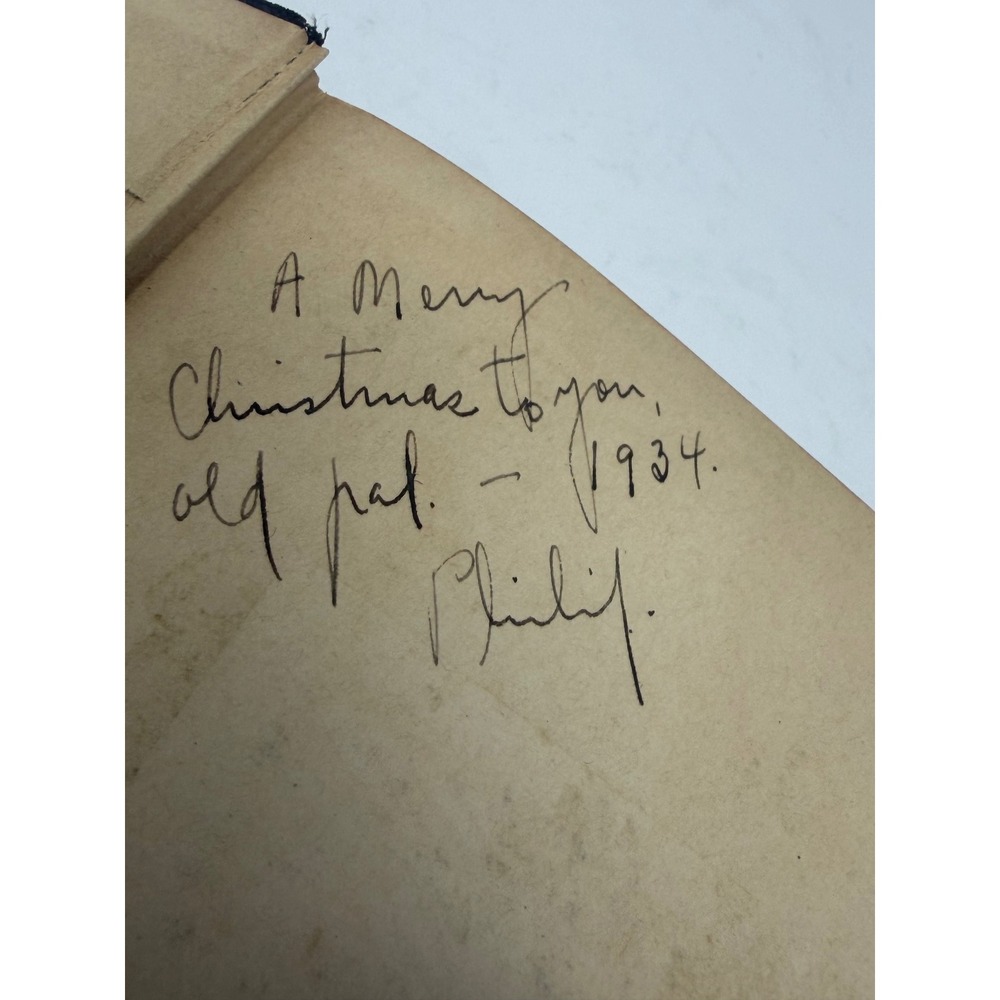 A Merry
Christmas to you,
old pal. – 1934.
Philip.